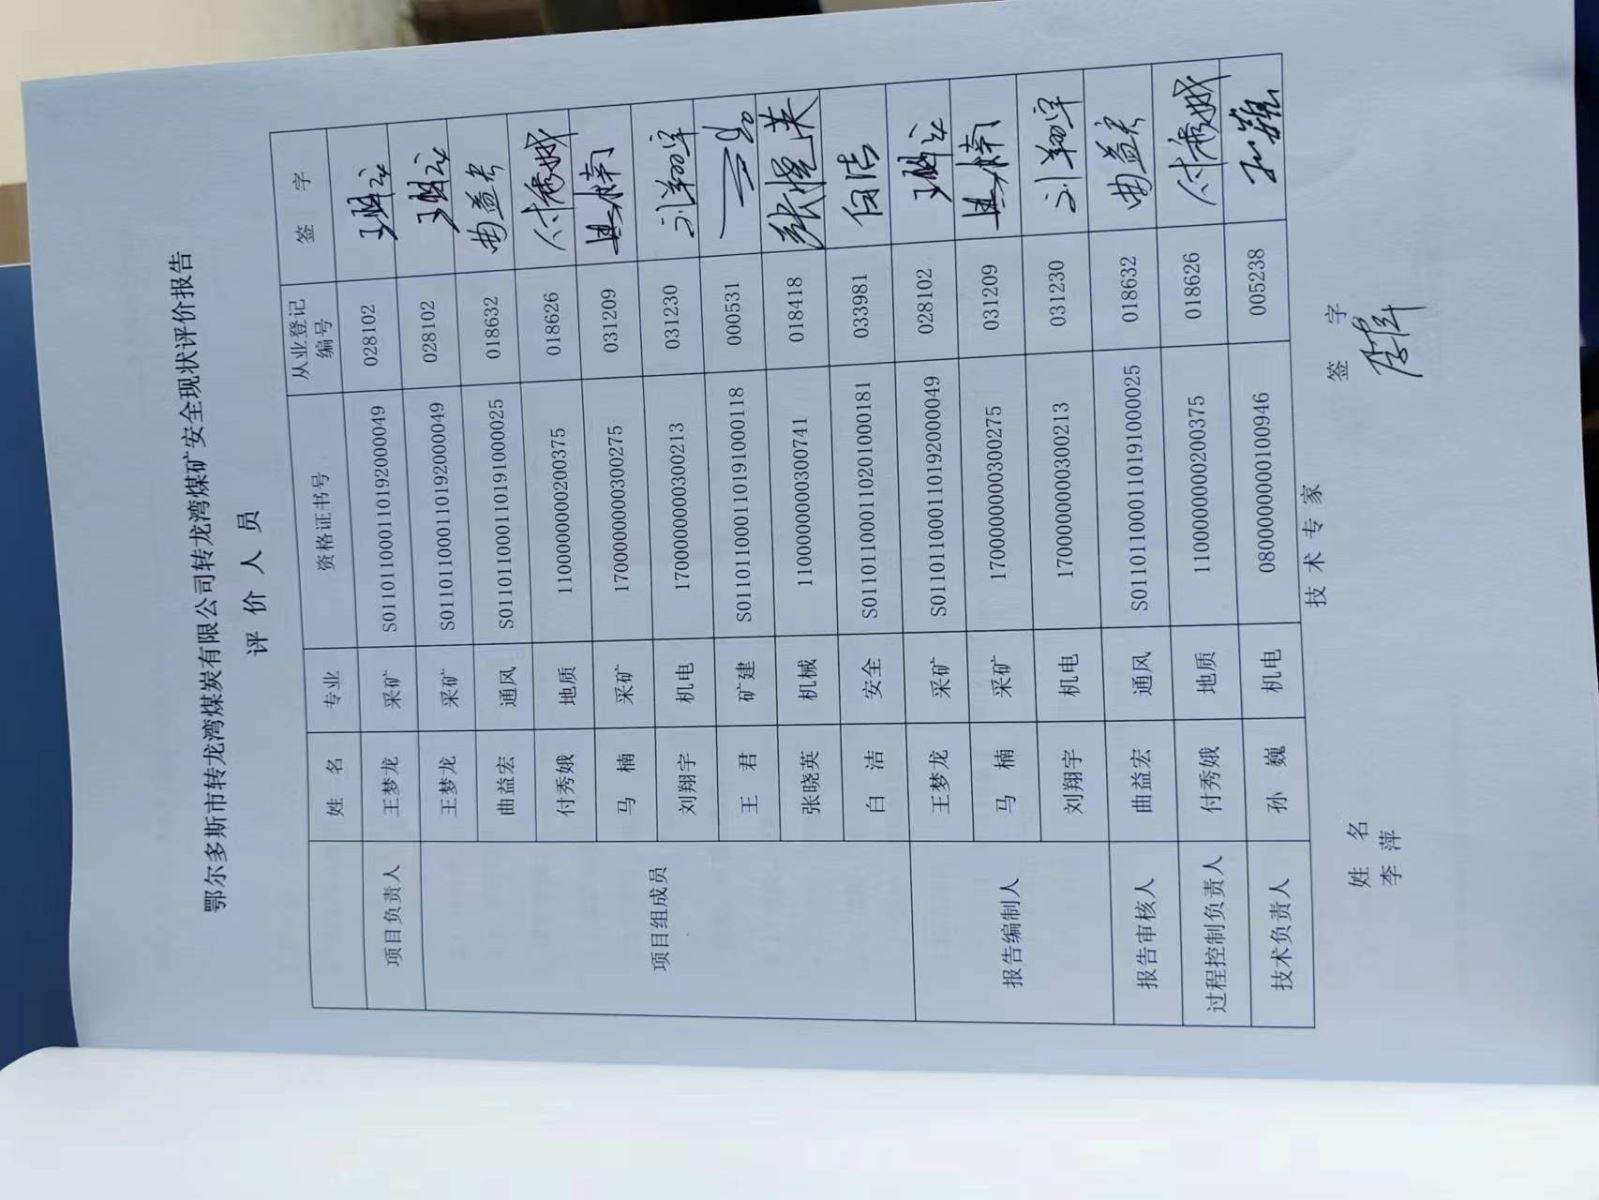 鄂尔多斯市转龙湾煤炭有限公司转龙湾煤矿安全现状评价报告
评 价 人 员
姓 名 专业 资格证书号 从业登记编号 签 字
项目负责人 王梦龙 采矿 S011011000110192000049 028102
项目组成员 王梦龙 采矿 S011011000110192000049 028102
曲益宏 通风 S011011000110191000025 018632 曲益宏
付秀娥 地质 1100000000200375 018626 付秀娥
马 楠 采矿 1700000000300275 031209 马楠
刘翔宇 机电 1700000000300213 031230 刘翔宇
王 君 矿建 S011011000110191000118 000531
张晓英 机械 1100000000300741 018418 张晓英
白 洁 安全 S011011000110201000181 033981 白洁
报告编制人 王梦龙 采矿 S011011000110192000049 028102
马 楠 采矿 1700000000300275 031209 马楠
刘翔宇 机电 1700000000300213 031230 刘翔宇
报告审核人 曲益宏 通风 S011011000110191000025 018632 曲益宏
过程控制负责人 付秀娥 地质 1100000000200375 018626 付秀娥
技术负责人 孙 巍 机电 0800000000100946 005238 孙巍
技 术 专 家
姓 名 签 字
李 萍 李萍